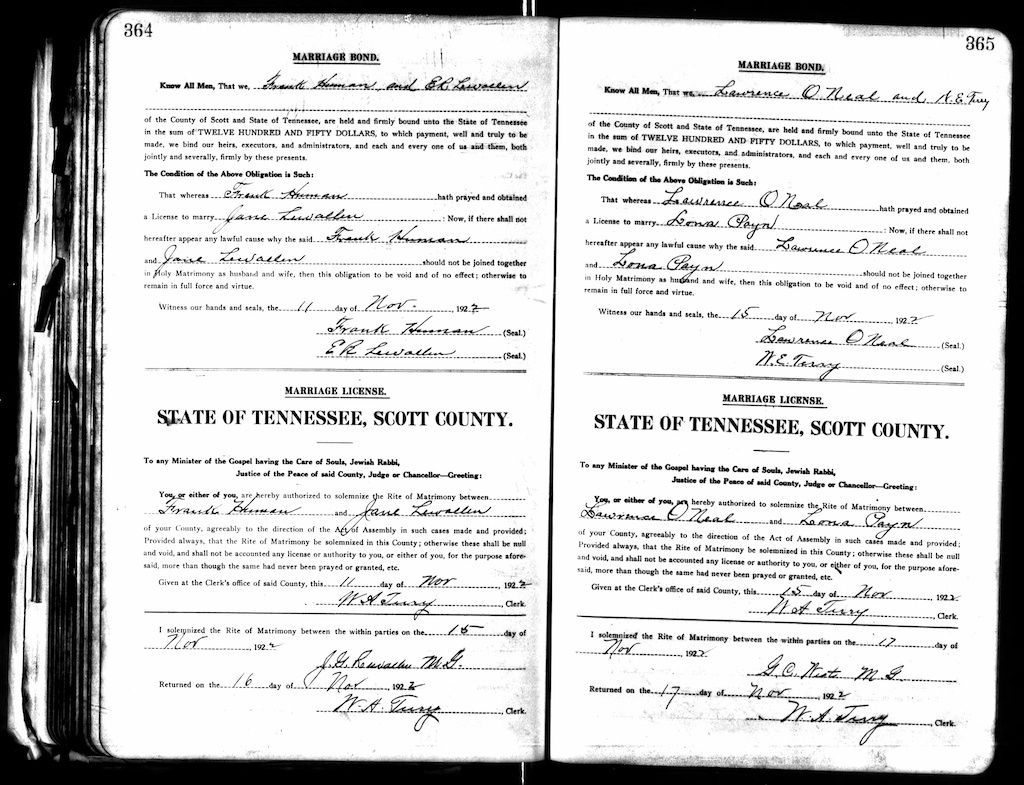 364
MARRIAGE BOND.
Know All Men, That we, Frank Human and E R Lewallen
of the County of Scott and State of Tennessee, are held and firmly bound unto the State of Tennessee
in the sum of TWELVE HUNDRED AND FIFTY DOLLARS, to which payment, well and truly to be
made, we bind our heirs, executors, and administrators, and each and every one of us and them, both
jointly and severally, firmly by these presents.
The Condition of the Above Obligation is Such:
That whereas Frank Human hath prayed and obtained
a License to marry Jane Lewallen : Now, if there shall not
hereafter appear any lawful cause why the said Frank Human
and Jane Lewallen should not be joined together
in Holy Matrimony as husband and wife, then this obligation to be void and of no effect; otherwise to
remain in full force and virtue.
Witness our hands and seals, the 11 day of Nov. , 1922
Frank Human (Seal.)
E R Lewallen (Seal.)
MARRIAGE LICENSE.
STATE OF TENNESSEE, SCOTT COUNTY.
To any Minister of the Gospel having the Care of Souls, Jewish Rabbi,
Justice of the Peace of said County, Judge or Chancellor—Greeting:
You, or either of you, are hereby authorized to solemnize the Rite of Matrimony between
Frank Human and Jane Lewallen
of your County, agreeably to the direction of the Act of Assembly in such cases made and provided;
Provided always, that the Rite of Matrimony be solemnized in this County; otherwise these shall be null
and void, and shall not be accounted any license or authority to you, or either of you, for the purpose afore-
said, more than though the same had never been prayed or granted, etc.
Given at the Clerk's office of said County, this 11 day of Nov , 1922
W A Terry , Clerk.
I solemnized the Rite of Matrimony between the within parties on the 15 day of
Nov , 1922
J. G. M. G.
Returned on the 16 day of Nov , 1922
W. A. Terry , Clerk.
365
MARRIAGE BOND.
Know All Men, That we, Lawrence O Neal and W. E. Terry
of the County of Scott and State of Tennessee, are held and firmly bound unto the State of Tennessee
in the sum of TWELVE HUNDRED AND FIFTY DOLLARS, to which payment, well and truly to be
made, we bind our heirs, executors, and administrators, and each and every one of us and them, both
jointly and severally, firmly by these presents.
The Condition of the Above Obligation is Such:
That whereas Lawrence O Neal hath prayed and obtained
a License to marry Lona Payn : Now, if there shall not
hereafter appear any lawful cause why the said Lawrence O Neal
and Lona Payn should not be joined together
in Holy Matrimony as husband and wife, then this obligation to be void and of no effect; otherwise to
remain in full force and virtue.
Witness our hands and seals, the 15 day of Nov , 1922
Lawrence O Neal (Seal.)
W. E. Terry (Seal.)
MARRIAGE LICENSE.
STATE OF TENNESSEE, SCOTT COUNTY.
To any Minister of the Gospel having the Care of Souls, Jewish Rabbi,
Justice of the Peace of said County, Judge or Chancellor—Greeting:
You, or either of you, are hereby authorized to solemnize the Rite of Matrimony between
Lawrence O Neal and Lona Payn
of your County, agreeably to the direction of the Act of Assembly in such cases made and provided;
Provided always, that the Rite of Matrimony be solemnized in this County; otherwise these shall be null
and void, and shall not be accounted any license or authority to you, or either of you, for the purpose afore-
said, more than though the same had never been prayed or granted, etc.
Given at the Clerk's office of said County, this 15 day of Nov , 1922
W A Terry , Clerk.
I solemnized the Rite of Matrimony between the within parties on the 17 day of
Nov , 1922
G. C. M G
Returned on the 17 day of Nov , 1922
W. A. Terry , Clerk.